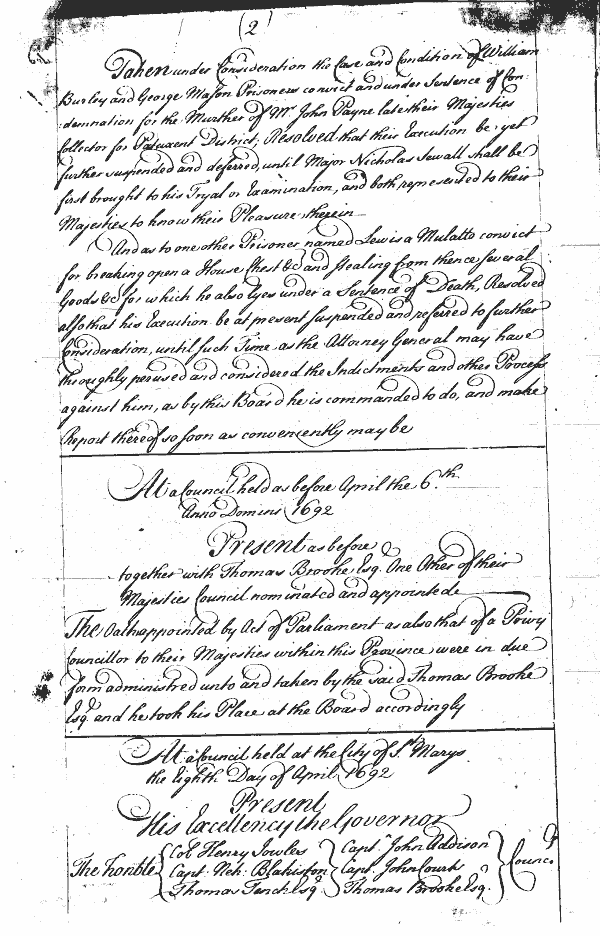 (2)
Taken under Consideration the Case and Condition of William
Burley and George Mason Prisoners convict and under Sentence of Con
demnation for the Murther of Mr. John Payne late their Majesties
Collector for Patuxent District; Resolved that their Execution be yet
further suspended and deferred, until Major Nicholas Sewall shall be
first brought to his Tryal or Examination, and both represented to their
Majesties to know their Pleasure therein
And as to one other Prisoner named Lewis a Mulatto convict
for breaking open a House Chest &c and stealing from thence several
Goods &c for which he also lyes under a Sentence of Death, Resolved
also that his Execution be at present suspended and referred to further
Consideration, until such Time as the Attorney General may have
throughly perused and considered the Indictments and other Process
against him, as by this Board he is commanded to do, and make
Report thereof so soon as conveniently may be
At a Council held as before April the 6th
Anno Domini 1692
Present as before
together with Thomas Brooke Esqr. One Other of their
Majesties Council nominated and appointed
The Oath appointed by Act of Parliament as also that of a Privy
Councillor to their Majesties within this Province were in due
form administred unto and taken by the said Thomas Brooke
Esqr. and he took his Place at the Board accordingly
At a Council held at the City of St. Marys
the Eighth Day of April 1692
Present
His Excellency the Governor
The honble { Col Henry Jowles Capt. John Addison
Capt. Neh: Blakiston Capt. John Courts } Councr
Thomas Tench Esqr. Thomas Brooke Esqr.